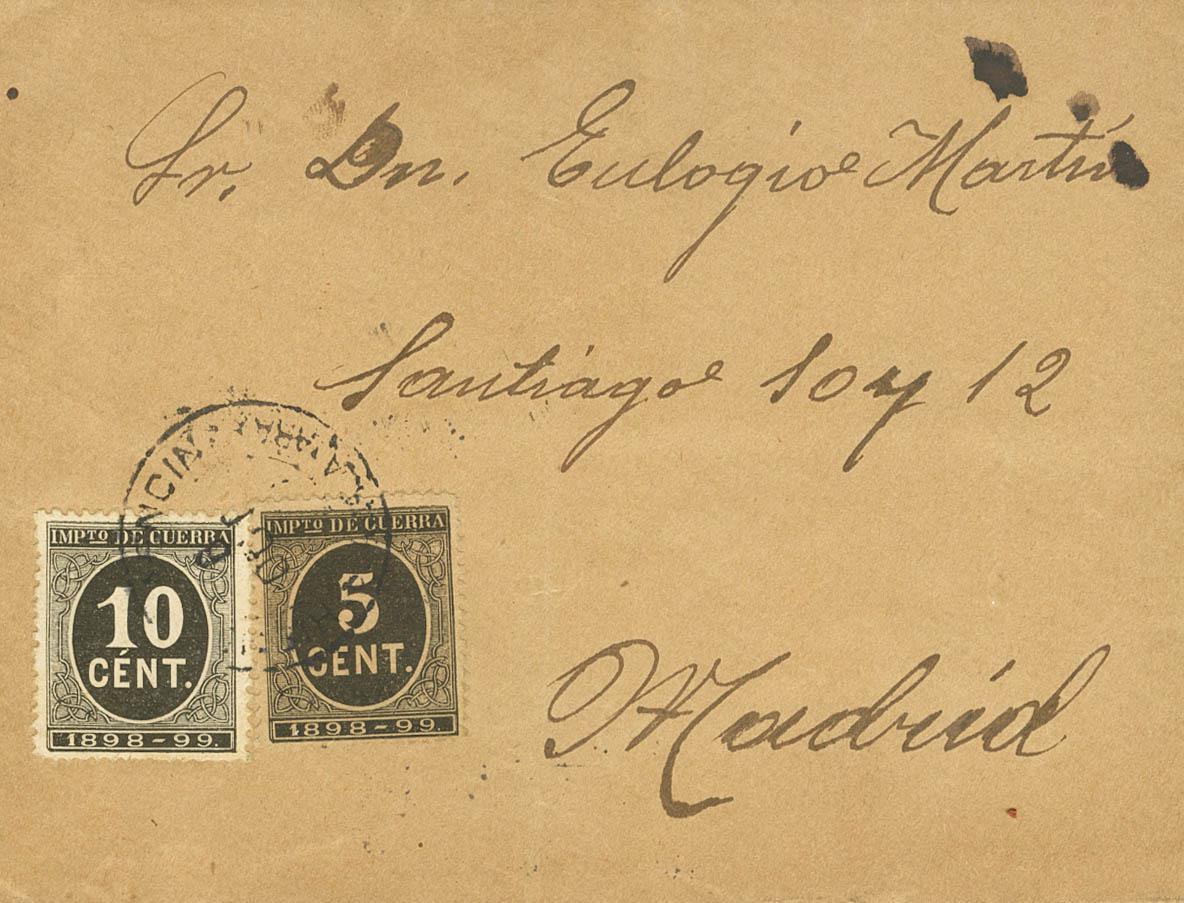 Sr. Dn. Eulogio Martín
Santiago 10 y 12
IMPTO DE GUERRA
10
CÉNT.
1898-99.
IMPTO DE GUERRA
5
CENT.
1898-99.
Madrid